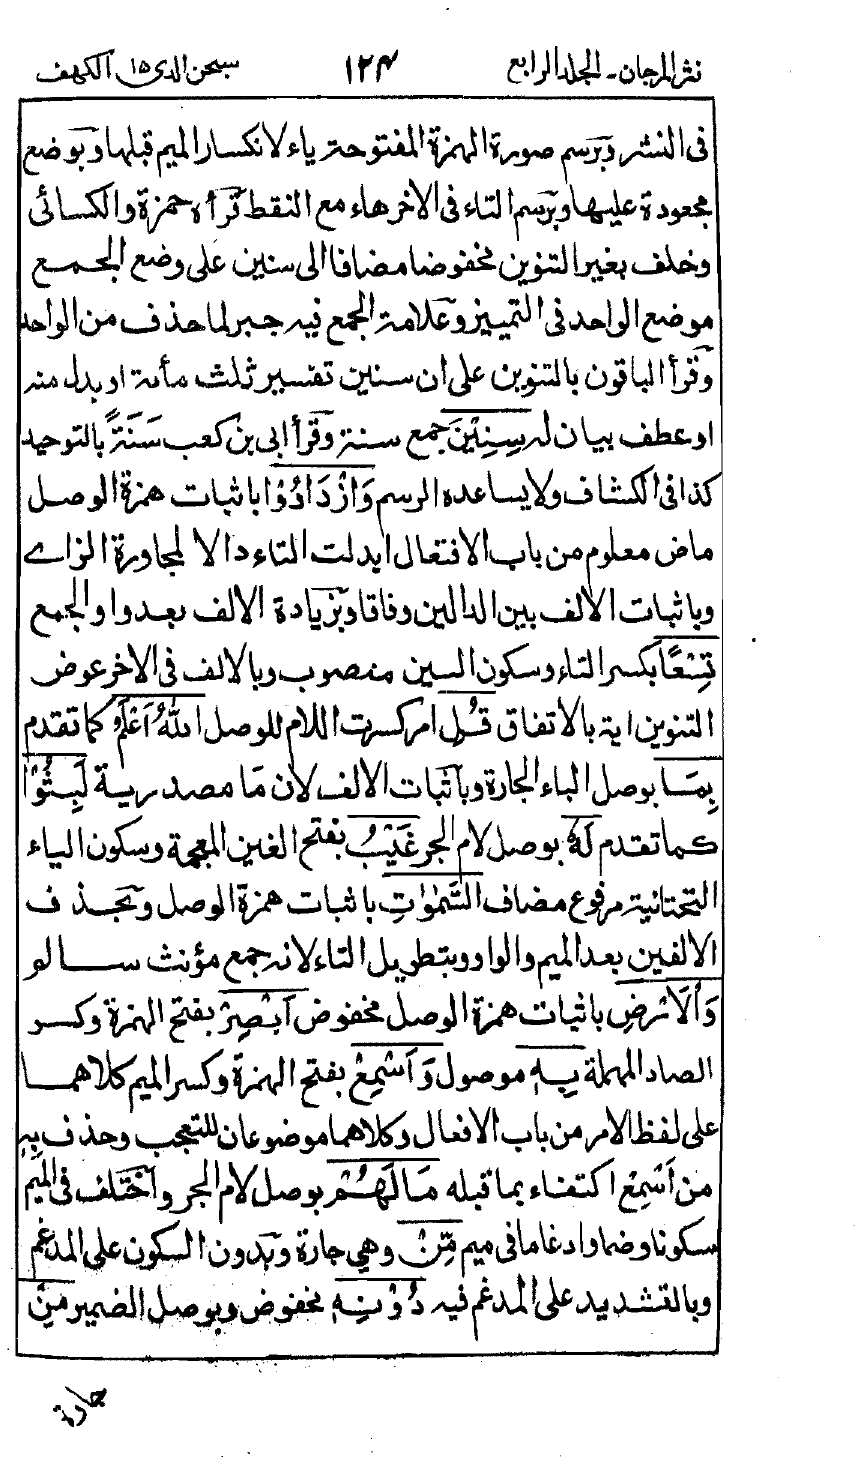 نثر المرجان ـ المجلد الرابع ١٢٤ سبحن الذى ١٥ الكهف
فى النشر وبرسم صورة الهمزة المفتوحة ياء لانكسار الميم قبلها وبوضع
مجعودة عليها وبرسم التاء فى الاخر هاء مع النقط قرأه حمزة والكسائى
وخلف بغير التنوين مخفوضا مضافا الى سنين على وضع الجمع
موضع الواحد فى التمييز وعلامة الجمع فيه جبر لما حذف من الواحد
وقرأ الباقون بالتنوين على ان سنين تفسير ثلث مأئة او بدل منه
او عطف بيان له سِنِيْنَ جمع سنة وقرأ ابى بن كعب سَنَةً بالتوحيد
كذا فى الكشاف ولا يساعده الرسم وَازْدَادُوْا باثبات همزة الوصل
ماض معلوم من باب الافتعال ابدلت التاء دالا لمجاورة الزاے
وباثبات الالف بين الدالين وفاقا وبزيادة الالف بعد واو الجمع
تِسْعًا بكسر التاء وسكون السين منصوب وبالالف فى الاخر عوض
التنوين اية بالاتفاق قُلِ امر كسرت اللام للوصل اللهُ اَعْلَمُ كما تقدم
بِمَا بوصل الباء الجارة وباثبات الالف لان مَا مصدرية لَبِثُوْا
كما تقدم لَهٗ بوصل لام الجر غَيْبُ بفتح الغين المعجمة وسكون الياء
التحتانية مرفوع مضاف السَّمٰوٰتِ باثبات همزة الوصل وبحذف
الالفين بعد الميم والواو وبتطويل التاء لانه جمع مؤنث سالم
وَالْاَرْضِ باثبات همزة الوصل مخفوض اَبْصِرْ بفتح الهمزة وكسر
الصاد المهملة بِهٖ موصول وَاَسْمِعْ بفتح الهمزة وكسر الميم كلاهما
على لفظ الامر من باب الافعال وكلاهما موضوعان للتعجب وحذف بِهٖ
من اَسْمِعْ اكتفاء بما قبله مَا لَهُمْ بوصل لام الجر واختلف فى الميم
سكونا وضما وادغاما فى ميم مِّنْ وهي جارة وبدون السكون على المدغم
وبالتشديد على المدغم فيه دُوْنِهٖ مخفوض وبوصل الضمير مِنْ
جارة